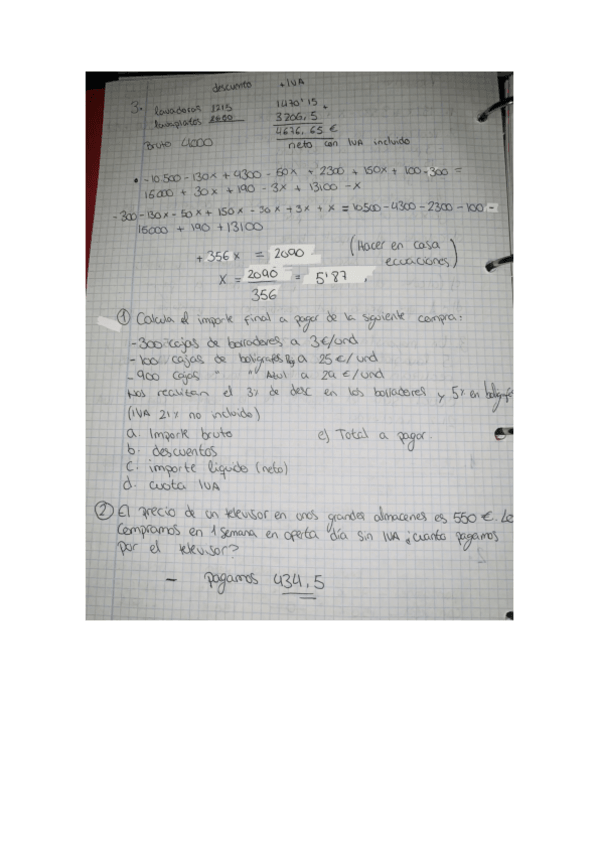 descuento + IVA
3. lavadoras 1215 1470'15 +
lavaplatos 2650 3206,5
4676,65 €
Bruto 4000 neto con IVA incluido
• -10500 - 130x + 4300 - 50x + 2300 + 150x + 100 - 300 =
16000 + 30x + 190 - 3x + 13100 - x
-300 - 130x - 50x + 150x - 30x + 3x + x = 10500 - 4300 - 2300 - 100 -
16000 + 190 + 13100
+ 356x = 2090 (Hacer en casa
ecuaciones)
x = 2090/356 = 5'87.
① Calcula el importe final a pagar de la siguiente compra:
- 300 cajas de borradores a 3€/und
- 100 cajas de bolígrafos a 25 €/und
- 900 cajas " " Azul a 24 €/und
Nos realizan el 3% de desc en los borradores y 5% en bolígrafo
(IVA 21% no incluido)
a. Importe bruto e) Total a pagar.
b. descuentos
c. importe líquido (neto)
d. cuota IVA
② El precio de un televisor en unos grandes almacenes es 550 €. Lo
compramos en 1 semana en oferta día sin IVA ¿cuanto pagamos
por el televisor?
- pagamos 434,5